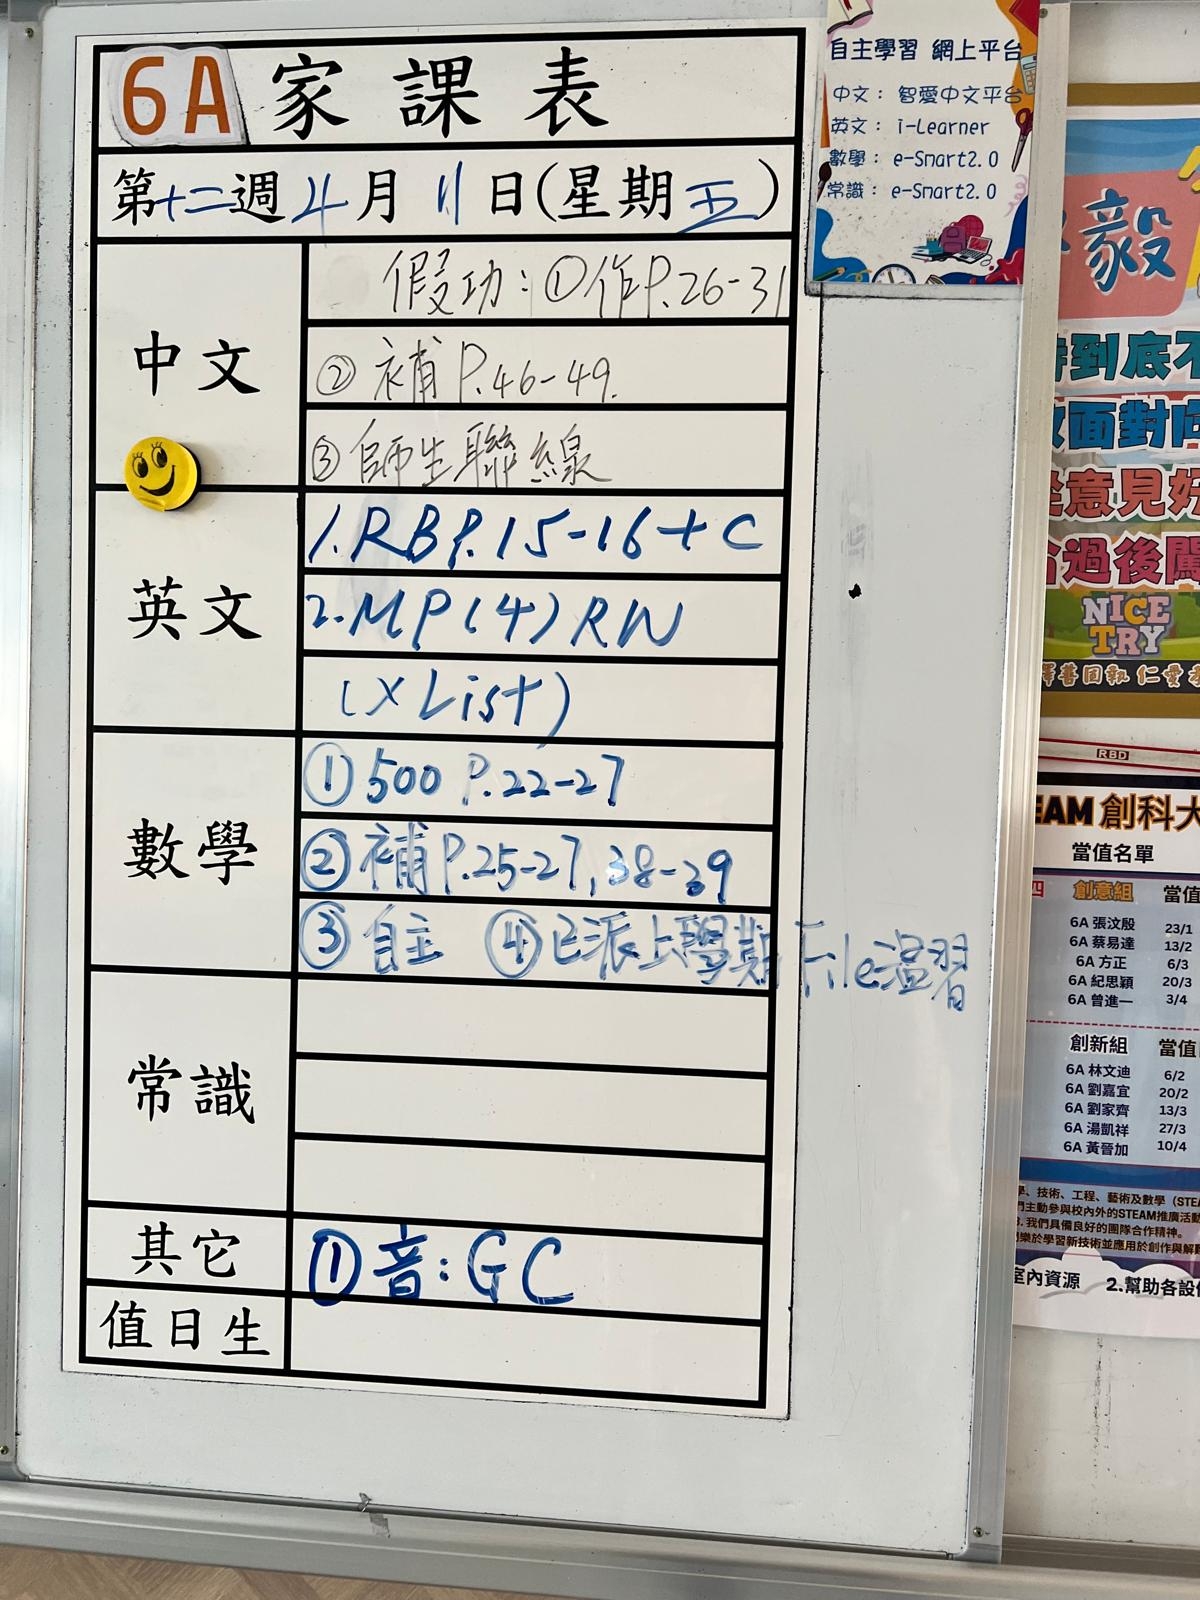 6A 家課表
第十二週 4月 11日(星期五)
中文
假功：①作P.26-31
②補P.46-49.
③師生聯線
英文
1.RBP.15-16+C
2.MP(4)RW
(X List)
數學
①500 P.22-27
②補P.25-27,38-39
③自主 ④已派上學期File溫習
常識
其它
①音:GC
值日生
自主學習 網上平台
中文： 智愛中文平台
英文： i-Learner
數學： e-Smart2.0
常識： e-Smart2.0
毅
持到底不
面對
意見好
過後闖
NICE
TRY
擇善固執 仁愛
RBD
EAM 創科大
當值名單
四 創意組 當值
6A 張汶殷 23/1
6A 蔡易達 13/2
6A 方正 6/3
6A 紀思穎 20/3
6A 曾進一 3/4
創新組 當值
6A 林文迪 6/2
6A 劉嘉宜 20/2
6A 劉家齊 13/3
6A 湯凱祥 27/3
6A 黃晉加 10/4
學、技術、工程、藝術及數學（STEA
們主動參與校內外的STEAM推廣活動
3. 我們具備良好的團隊合作精神。
樂於學習新技術並應用於創作與解
室內資源 2.幫助各設